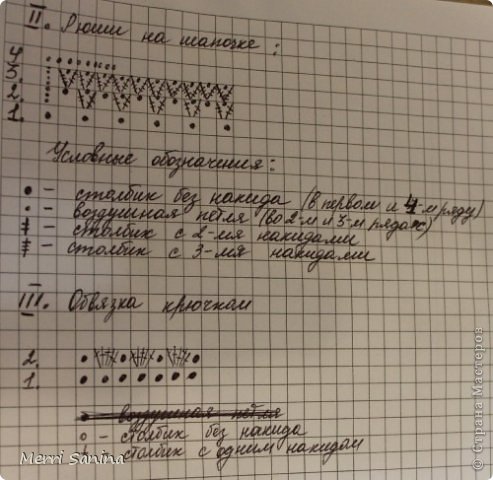 II. Рюши на шапочке:
4
3.
2.
1.
Условные обозначения:
● – столбик без накида (в первом и 4-м ряду)
• – воздушная петля (во 2-м и 3-м рядах)
– столбик с 2-мя накидами
– столбик с 3-мя накидами
III. Обвязка крючком
2.
1.
● – воздушная петля
○ – столбик без накида
столбик с одним накидом
Merri Sanina
© Страна Мастеров